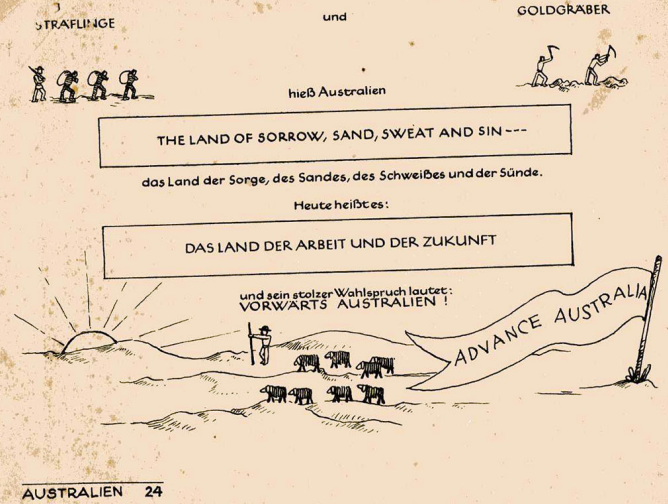 STRÄFLINGE und GOLDGRÄBER
hieß Australien
THE LAND OF SORROW, SAND, SWEAT AND SIN---
das Land der Sorge, des Sandes, des Schweißes und der Sünde.
Heute heißt es:
DAS LAND DER ARBEIT UND DER ZUKUNFT
und sein stolzer Wahlspruch lautet:
VORWÄRTS AUSTRALIEN !
ADVANCE AUSTRALIA
AUSTRALIEN 24